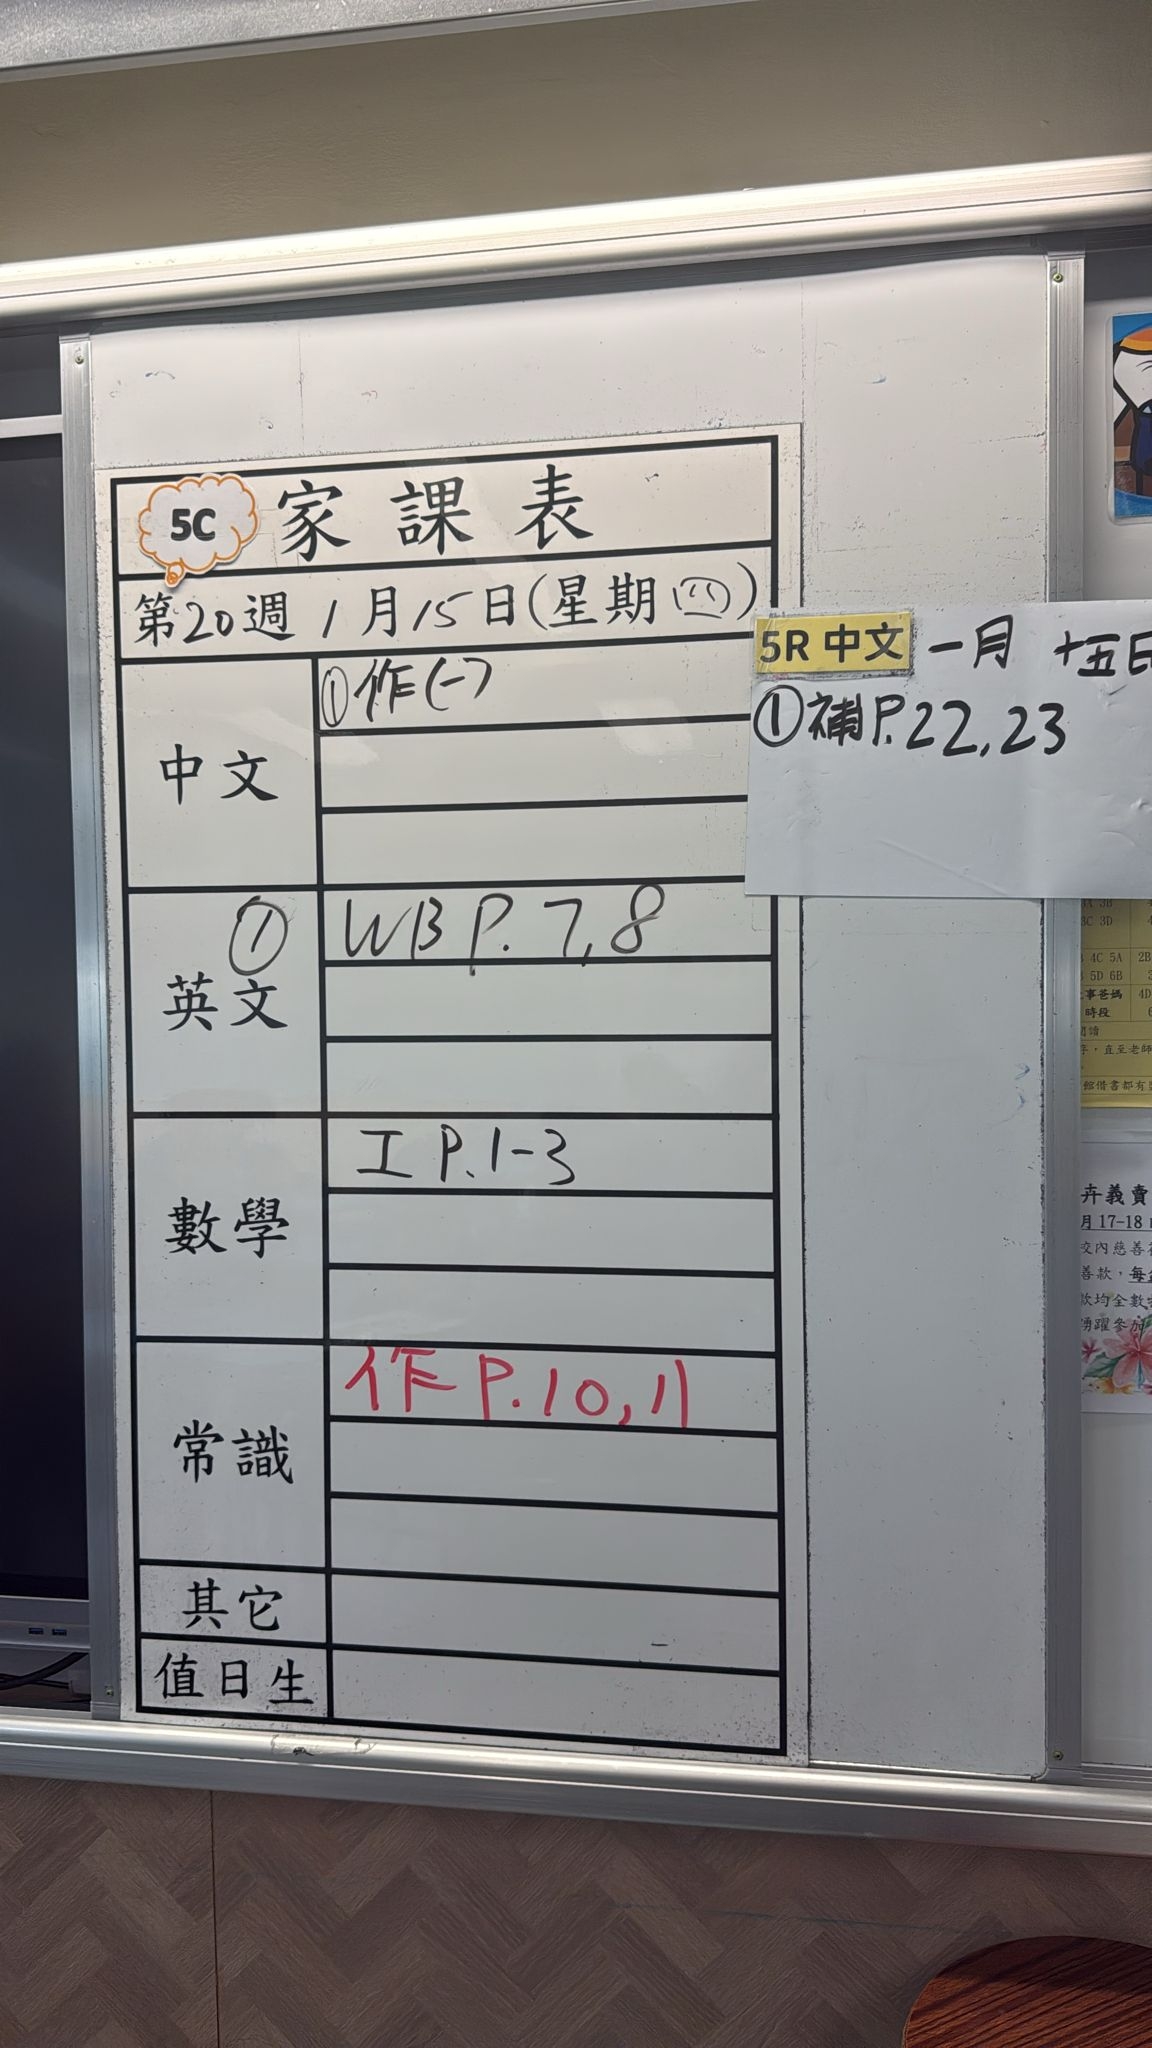 5C 家課表
第20週 1月15日(星期四)
中文
①作(一)
英文
① WB P. 7,8
數學
工 P.1-3
常識
作 P.10,11
其它
值日生
5R 中文 一月 十五日
①補P.22,23
3A 3B
3C 3D
4C 5A 2B
5D 6B
事爸媽 4D
時段
閱讀
,直至老師
館借書都有
卉義賣
月17-18
校內慈善
善款,每
款均全數
踴躍參加